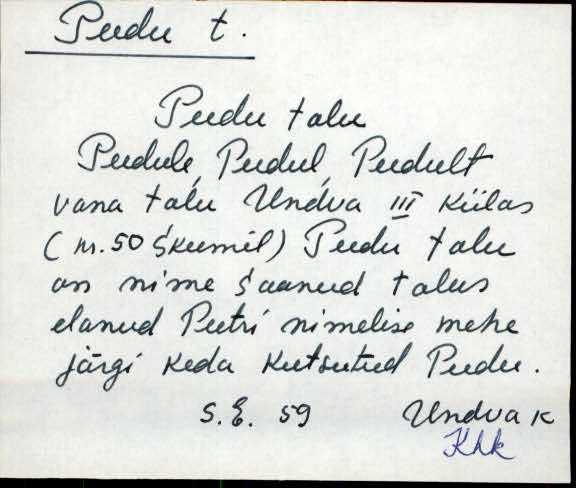 Pudu t.
Pudu talu
Pudule, Pudul, Pudult
vana talu Undva III külas
(n. 50 skeemil) Pudu talu
on nime saanud talus
elanud Peetri nimelise mehe
järgi keda kutsutud Pudu.
S.E. 59 Undva k
Khk